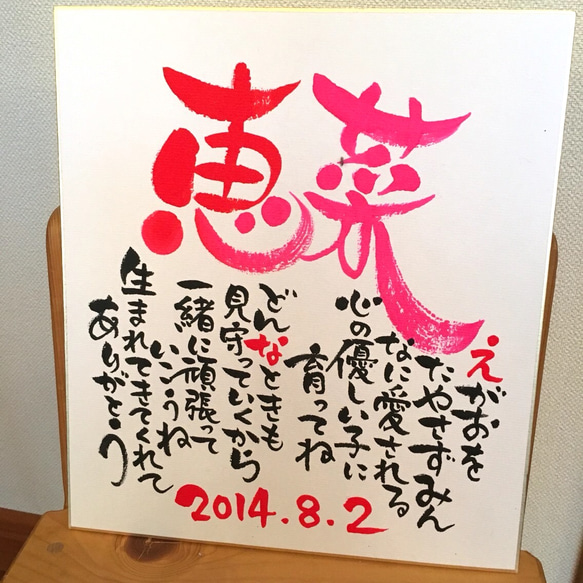 恵菜
えがおを
たやさずみん
なに愛される
心の優しい子に
育ってね
どんなときも
見守っていくから
一緒に頑張って
いこうね
生まれてきてくれて
ありがとう
2014.8.2